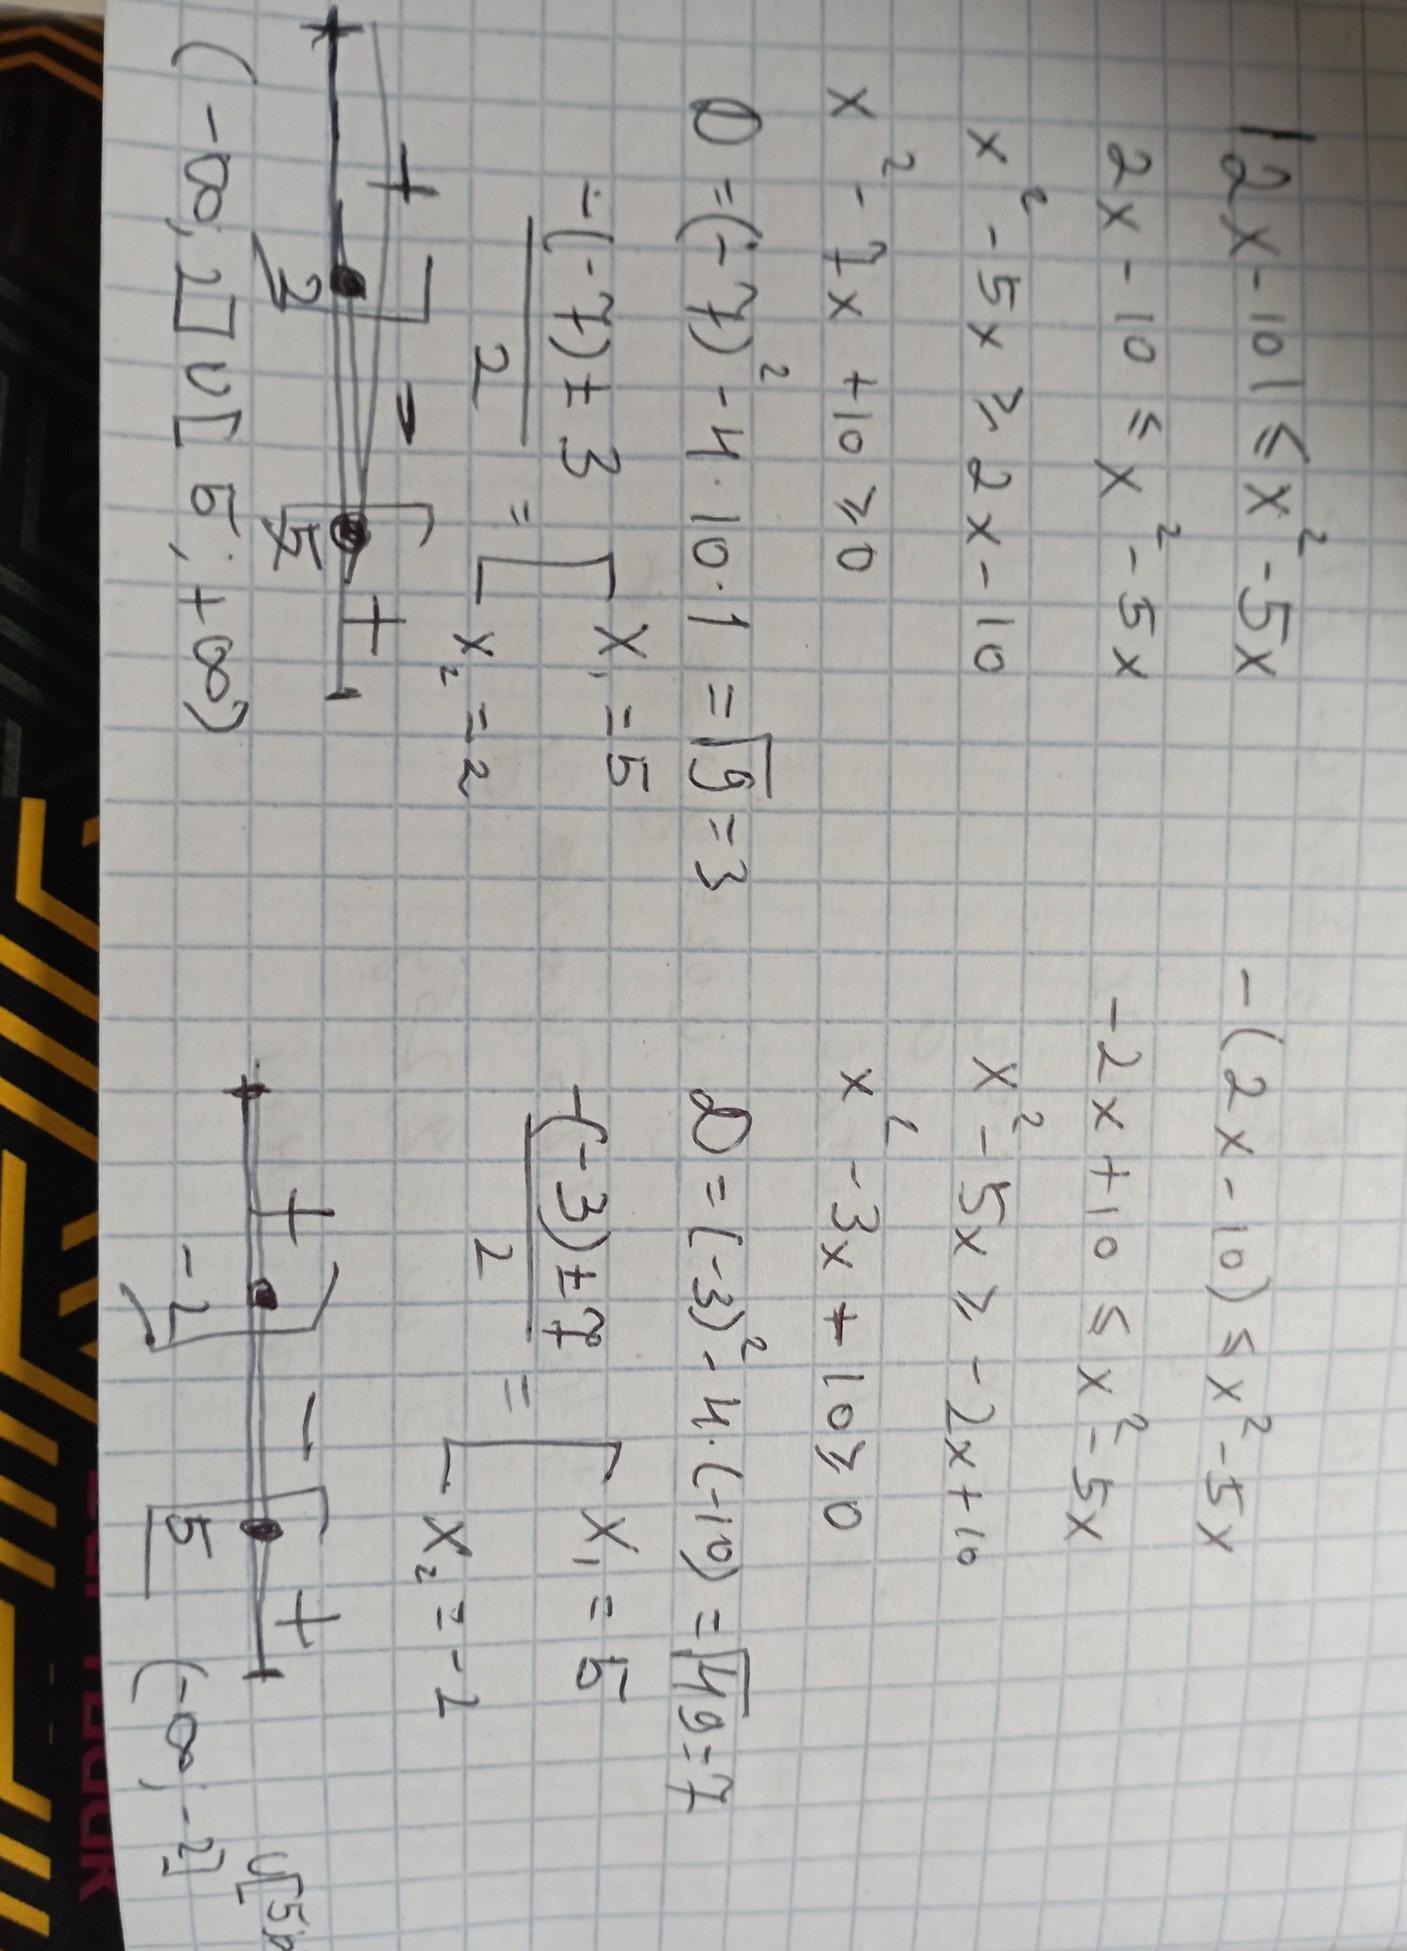 |2x-10| ≤ x²-5x
2x-10 ≤ x²-5x
x²-5x ≥ 2x-10
x²-7x+10 ≥ 0
D=(-7)²-4·10·1=√9=3
-(-7)±3
2
= [ x₁=5
x₂=2
+ - +
2 5
(-∞; 2] ∪ [5; +∞)
-(2x-10) ≤ x²-5x
-2x+10 ≤ x²-5x
x²-5x ≥ -2x+10
x²-3x+10 ≥ 0
D=(-3)²-4·(-10)=√49=7
-(-3)±7
2
= [ x₁=5
x₂=-2
+ - +
-2 5
(-∞; -2] ∪ [5;